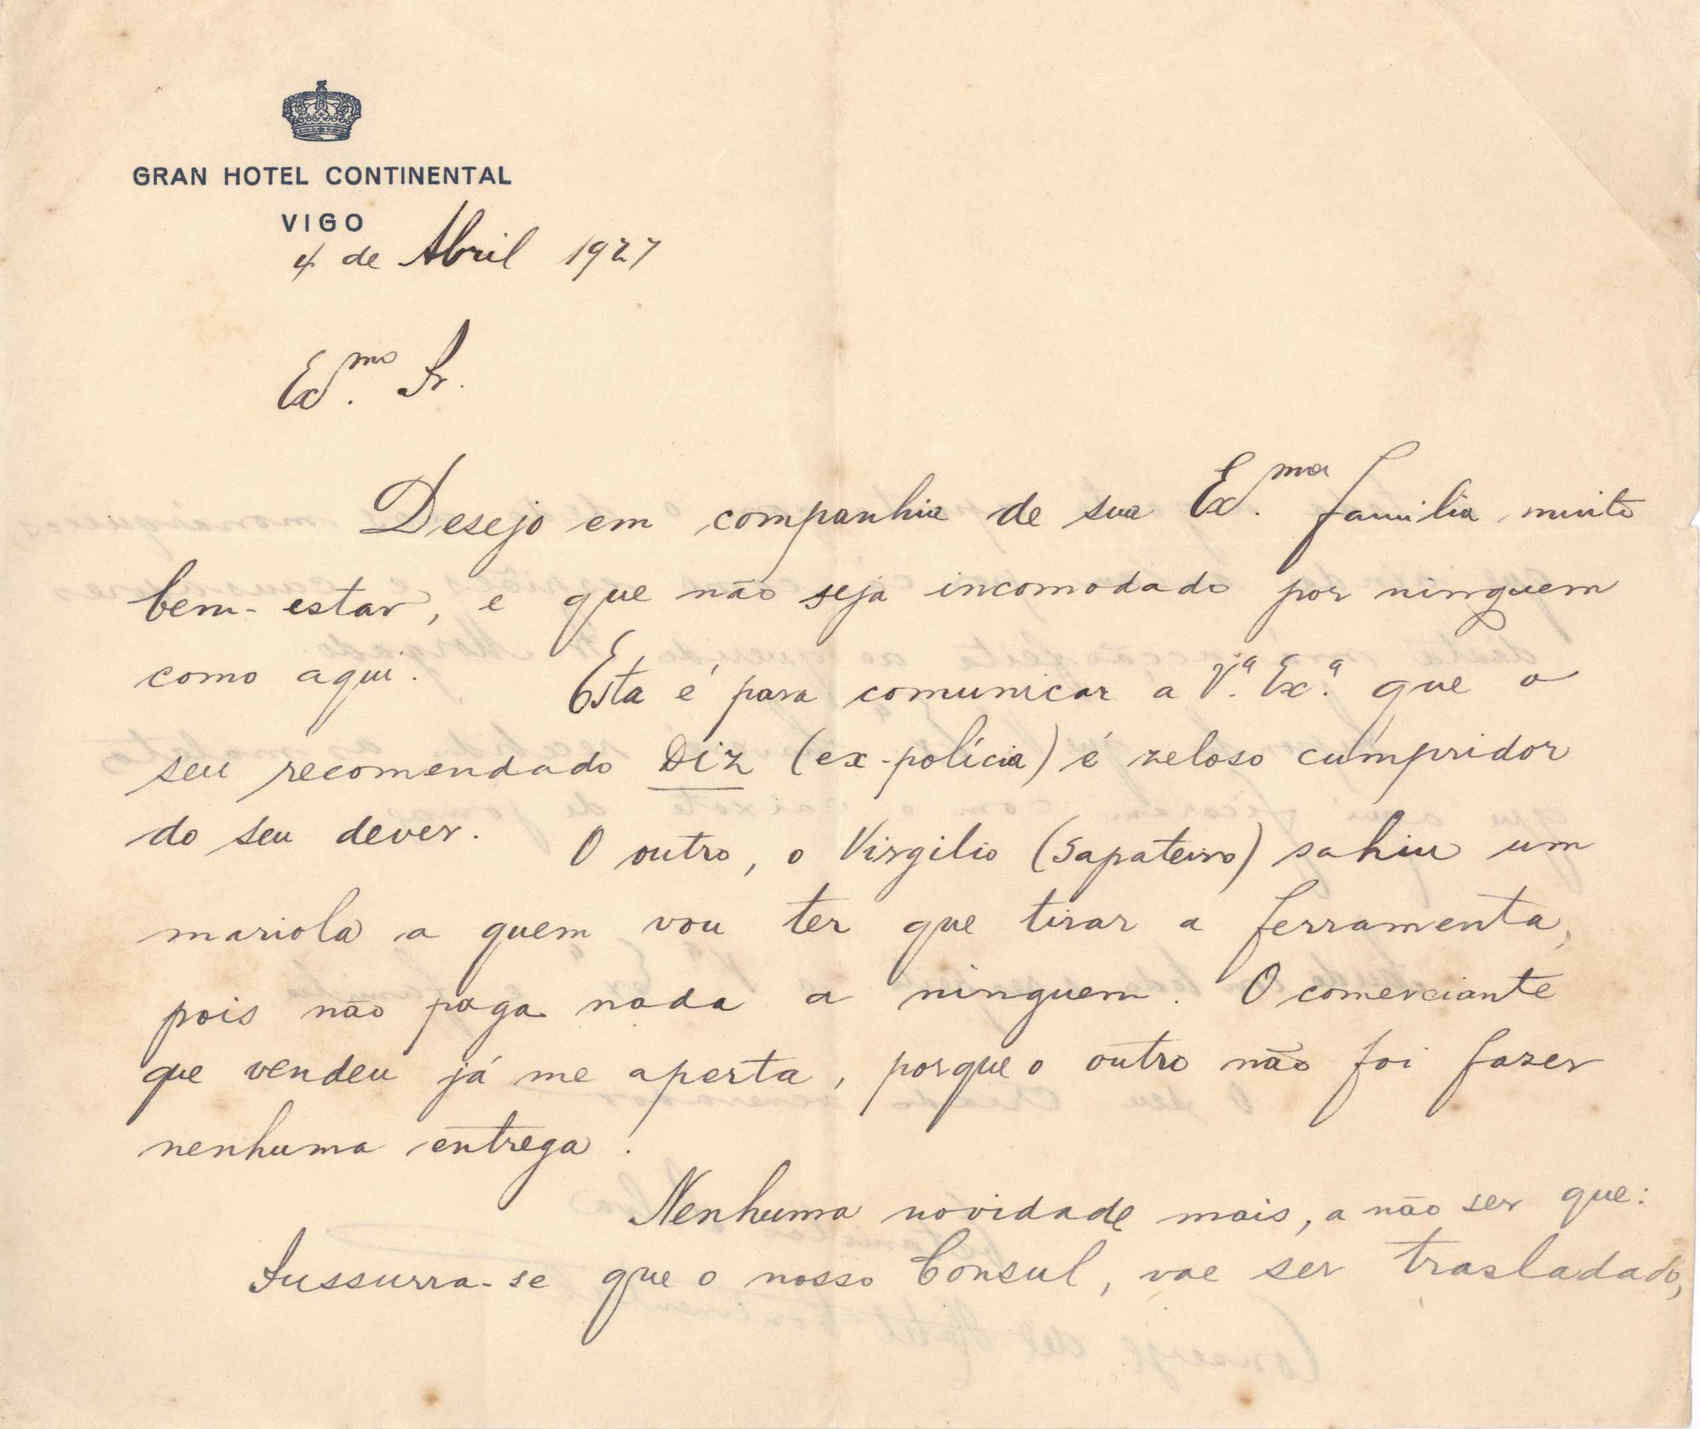 GRAN HOTEL CONTINENTAL
VIGO
4 de Abril 1927
Ex.mo Sr.
Desejo em companhia de sua Ex.ma familia muito
bem-estar, e que não seja incomodado por ninguem
como aqui. Esta é para comunicar a V.ª Ex.ª que o
seu recomendado Diz (ex-polícia) é zeloso cumpridor
do seu dever. O outro, o Virgilio (Sapateiro) sahiu um
mariola a quem vou ter que tirar a ferramenta,
pois não paga nada a ninguem. O comerciante
que vendeu já me aperta, porque o outro não foi fazer
nenhuma entrega.
Nenhuma novidade mais, a não ser que:
Sussurra-se que o nosso Consul, vae ser trasladado,